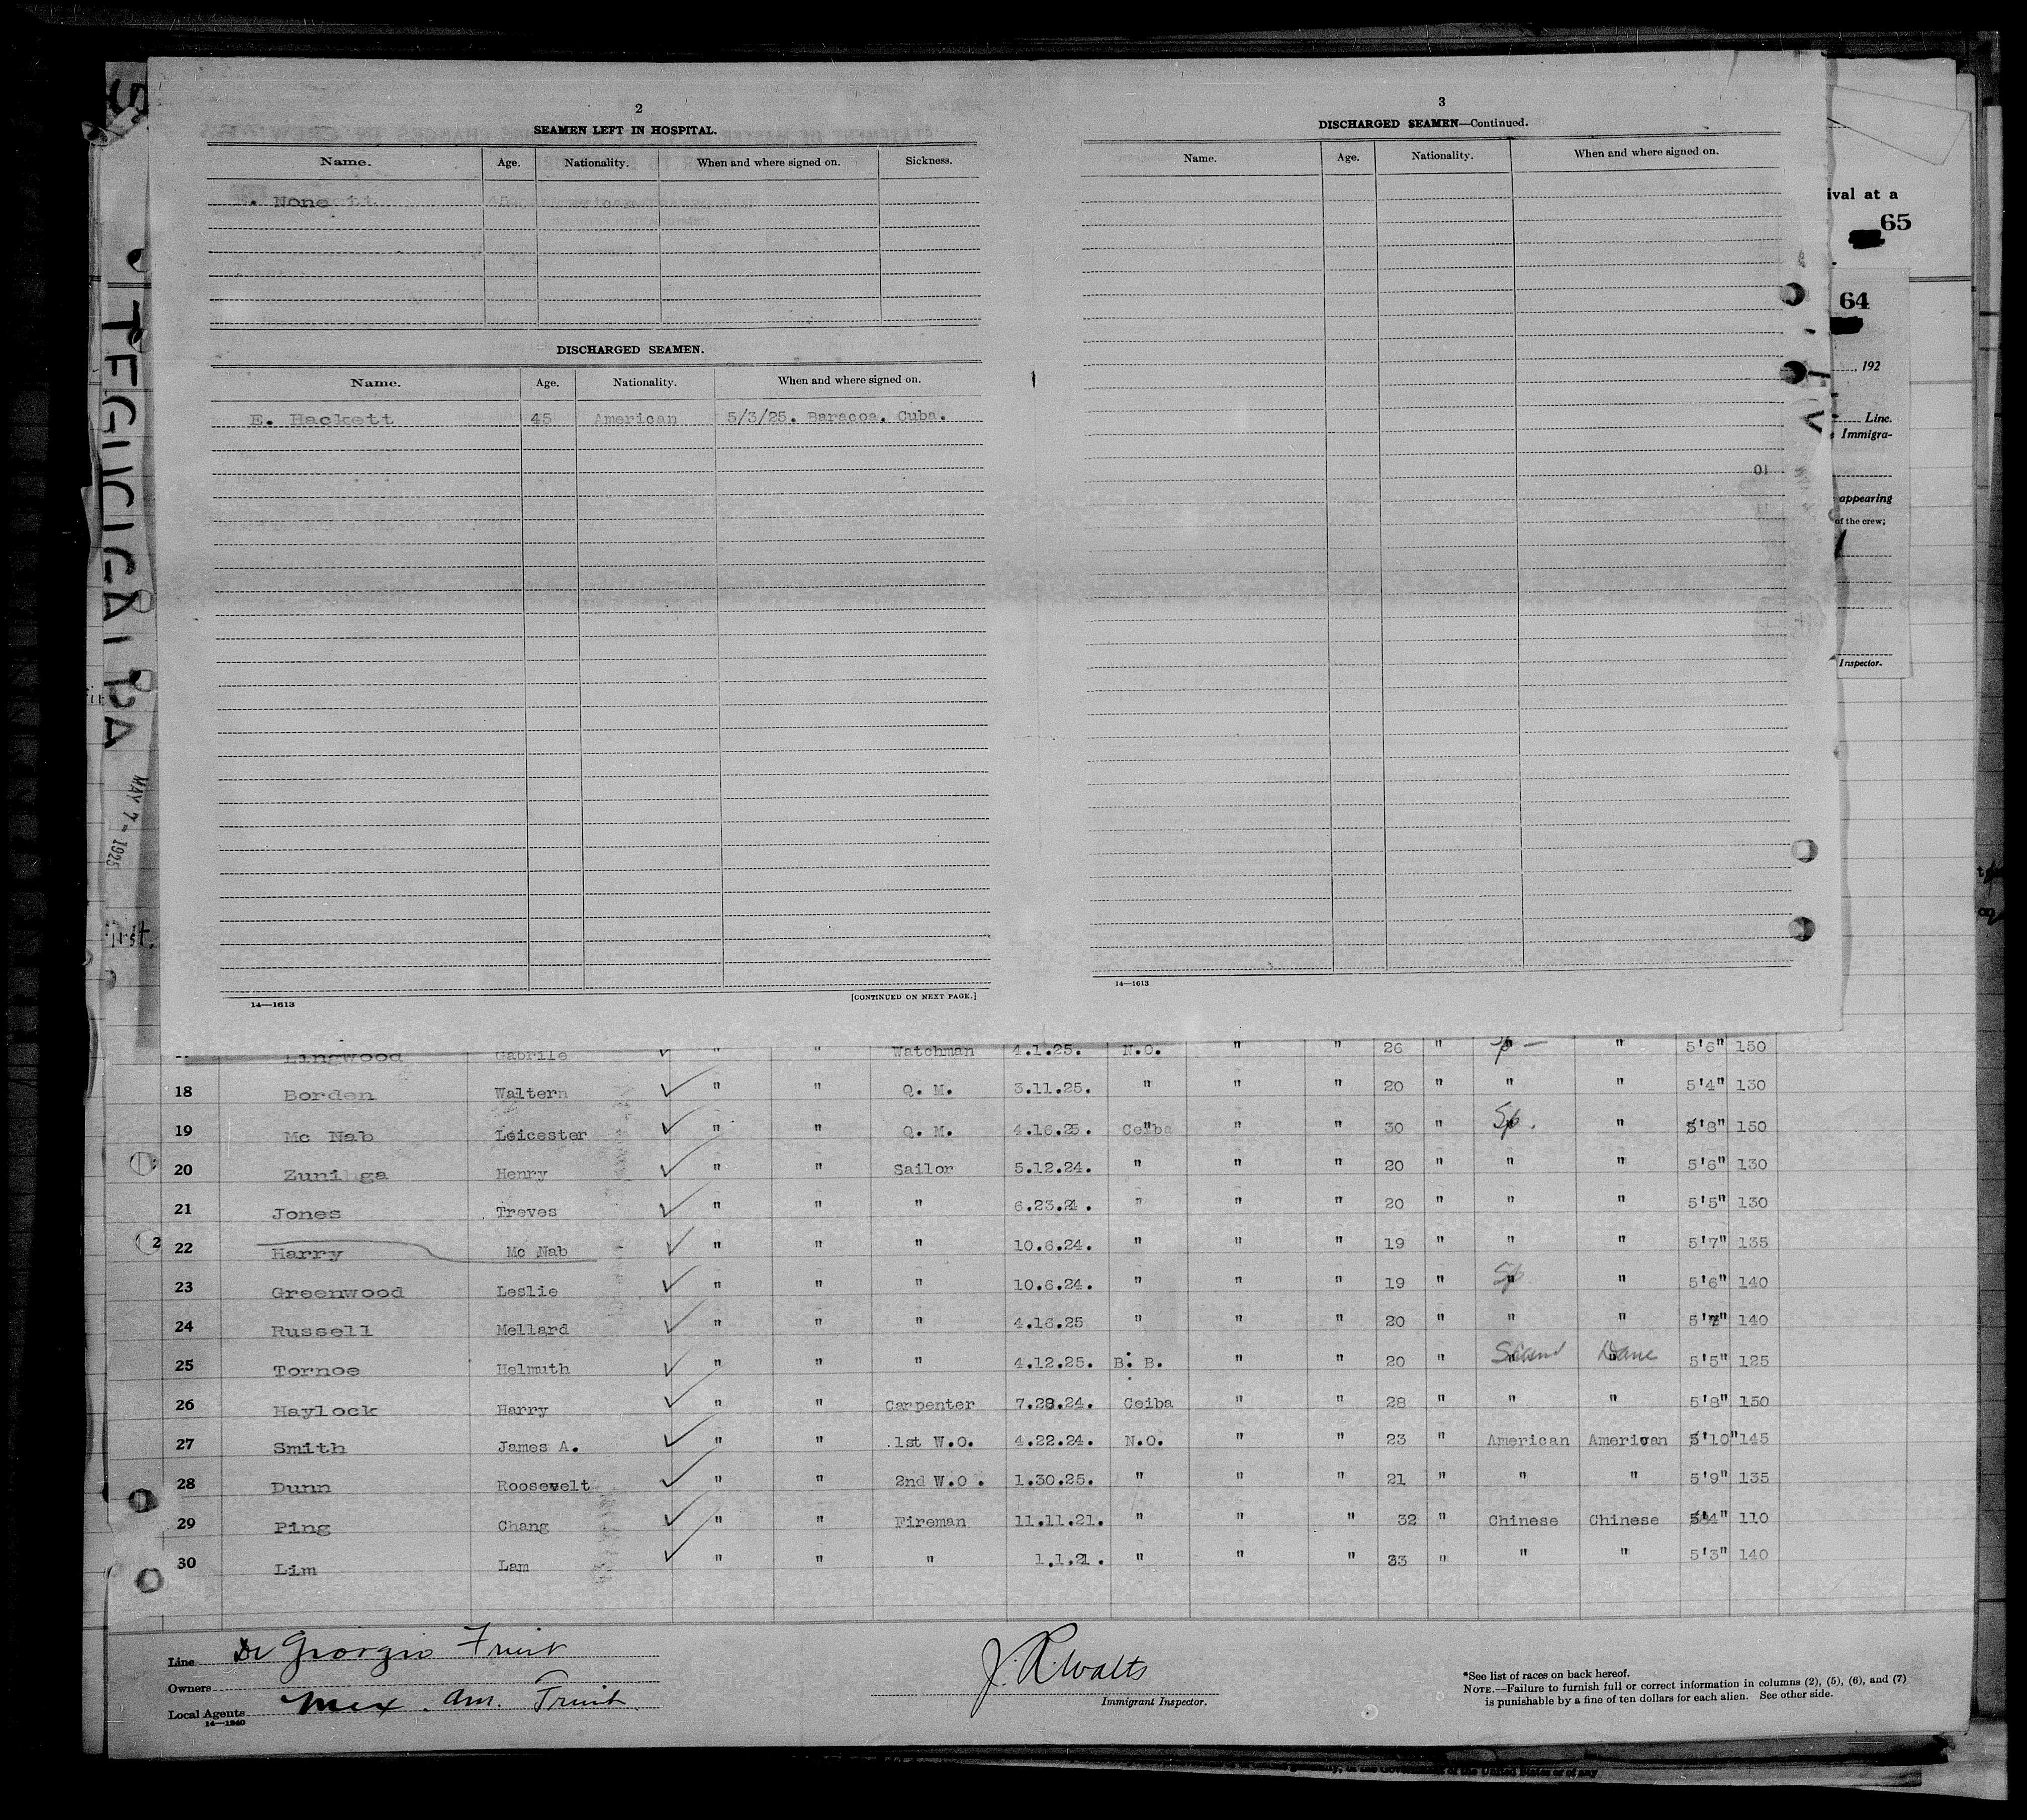 2
SEAMEN LEFT IN HOSPITAL.
Name. Age. Nationality. When and where signed on. Sickness.
None
DISCHARGED SEAMEN.
Name. Age. Nationality. When and where signed on.
E. Hackett 45 American 5/3/25. Baracoa. Cuba.
14—1613 [CONTINUED ON NEXT PAGE.]
3
DISCHARGED SEAMEN—Continued.
Name. Age. Nationality. When and where signed on.
14—1613
ival at a
65
64
192
Line.
Immigra-
appearing
of the crew;
Inspector.
TEGUCIGALPA
MAY 7 - 1925
irst.
Lingwood Gabrile ✓ " " Watchman 4.1.25. N.O. " " 26 " Sp — " 5'6" 150
18 Borden Waltern ✓ " " Q. M. 3.11.25. " " " 20 " " " 5'4" 130
19 Mc Nab Leicester ✓ " " Q. M. 4.16.25. Ceiba " " 30 " Sp. " 5'8" 150
20 Zuniga Henry ✓ " " Sailor 5.12.24. " " " 20 " " " 5'6" 130
21 Jones Treves ✓ " " " 6.23.24. " " " 20 " " " 5'5" 130
2 22 Harry Mc Nab ✓ " " " 10.6.24. " " " 19 " " " 5'7" 135
23 Greenwood Leslie ✓ " " " 10.6.24. " " " 19 " Sp. " 5'6" 140
24 Russell Mellard ✓ " " " 4.16.25 " " " 20 " " " 5'7" 140
25 Tornoe Helmuth ✓ " " " 4.12.25. B. B. " " 20 " Scand Dane 5'5" 125
26 Haylock Harry ✓ " " Carpenter 7.28.24. Ceiba " " 28 " " " 5'8" 150
27 Smith James A. ✓ " " 1st W.O. 4.22.24. N.O. " " 23 " American American 5'10" 145
28 Dunn Roosevelt ✓ " " 2nd W.O. 1.30.25. " " " 21 " " " 5'9" 135
29 Ping Chang ✓ " " Fireman 11.11.21. " " " 32 " Chinese Chinese 5'4" 110
30 Lim Lam ✓ " " " 1.1.21. " " " 33 " " " 5'3" 140
Line Di Giorgio Fruit
Owners
Local Agents Mex. Am. Fruit
14—1240
J. R. Walts
Immigrant Inspector.
*See list of races on back hereof.
NOTE.—Failure to furnish full or correct information in columns (2), (5), (6), and (7)
is punishable by a fine of ten dollars for each alien. See other side.